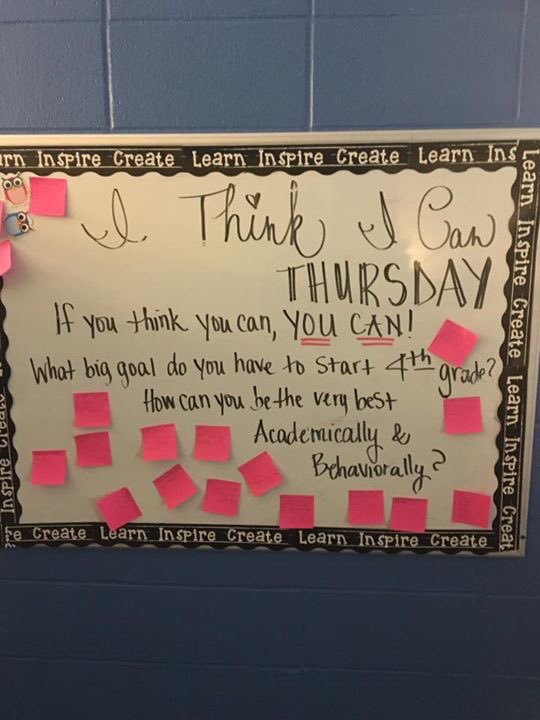 rn Inspire Create Learn Inspire Create Learn Ins
Learn Inspire Create Learn Inspire Creat
I Think I Can
THURSDAY
If you think you can, YOU CAN!
What big goal do you have to start 4th grade?
How can you be the very best
Academically &
Behaviorally?
Inspire Create
re Create Learn Inspire Create Learn Inspire Create